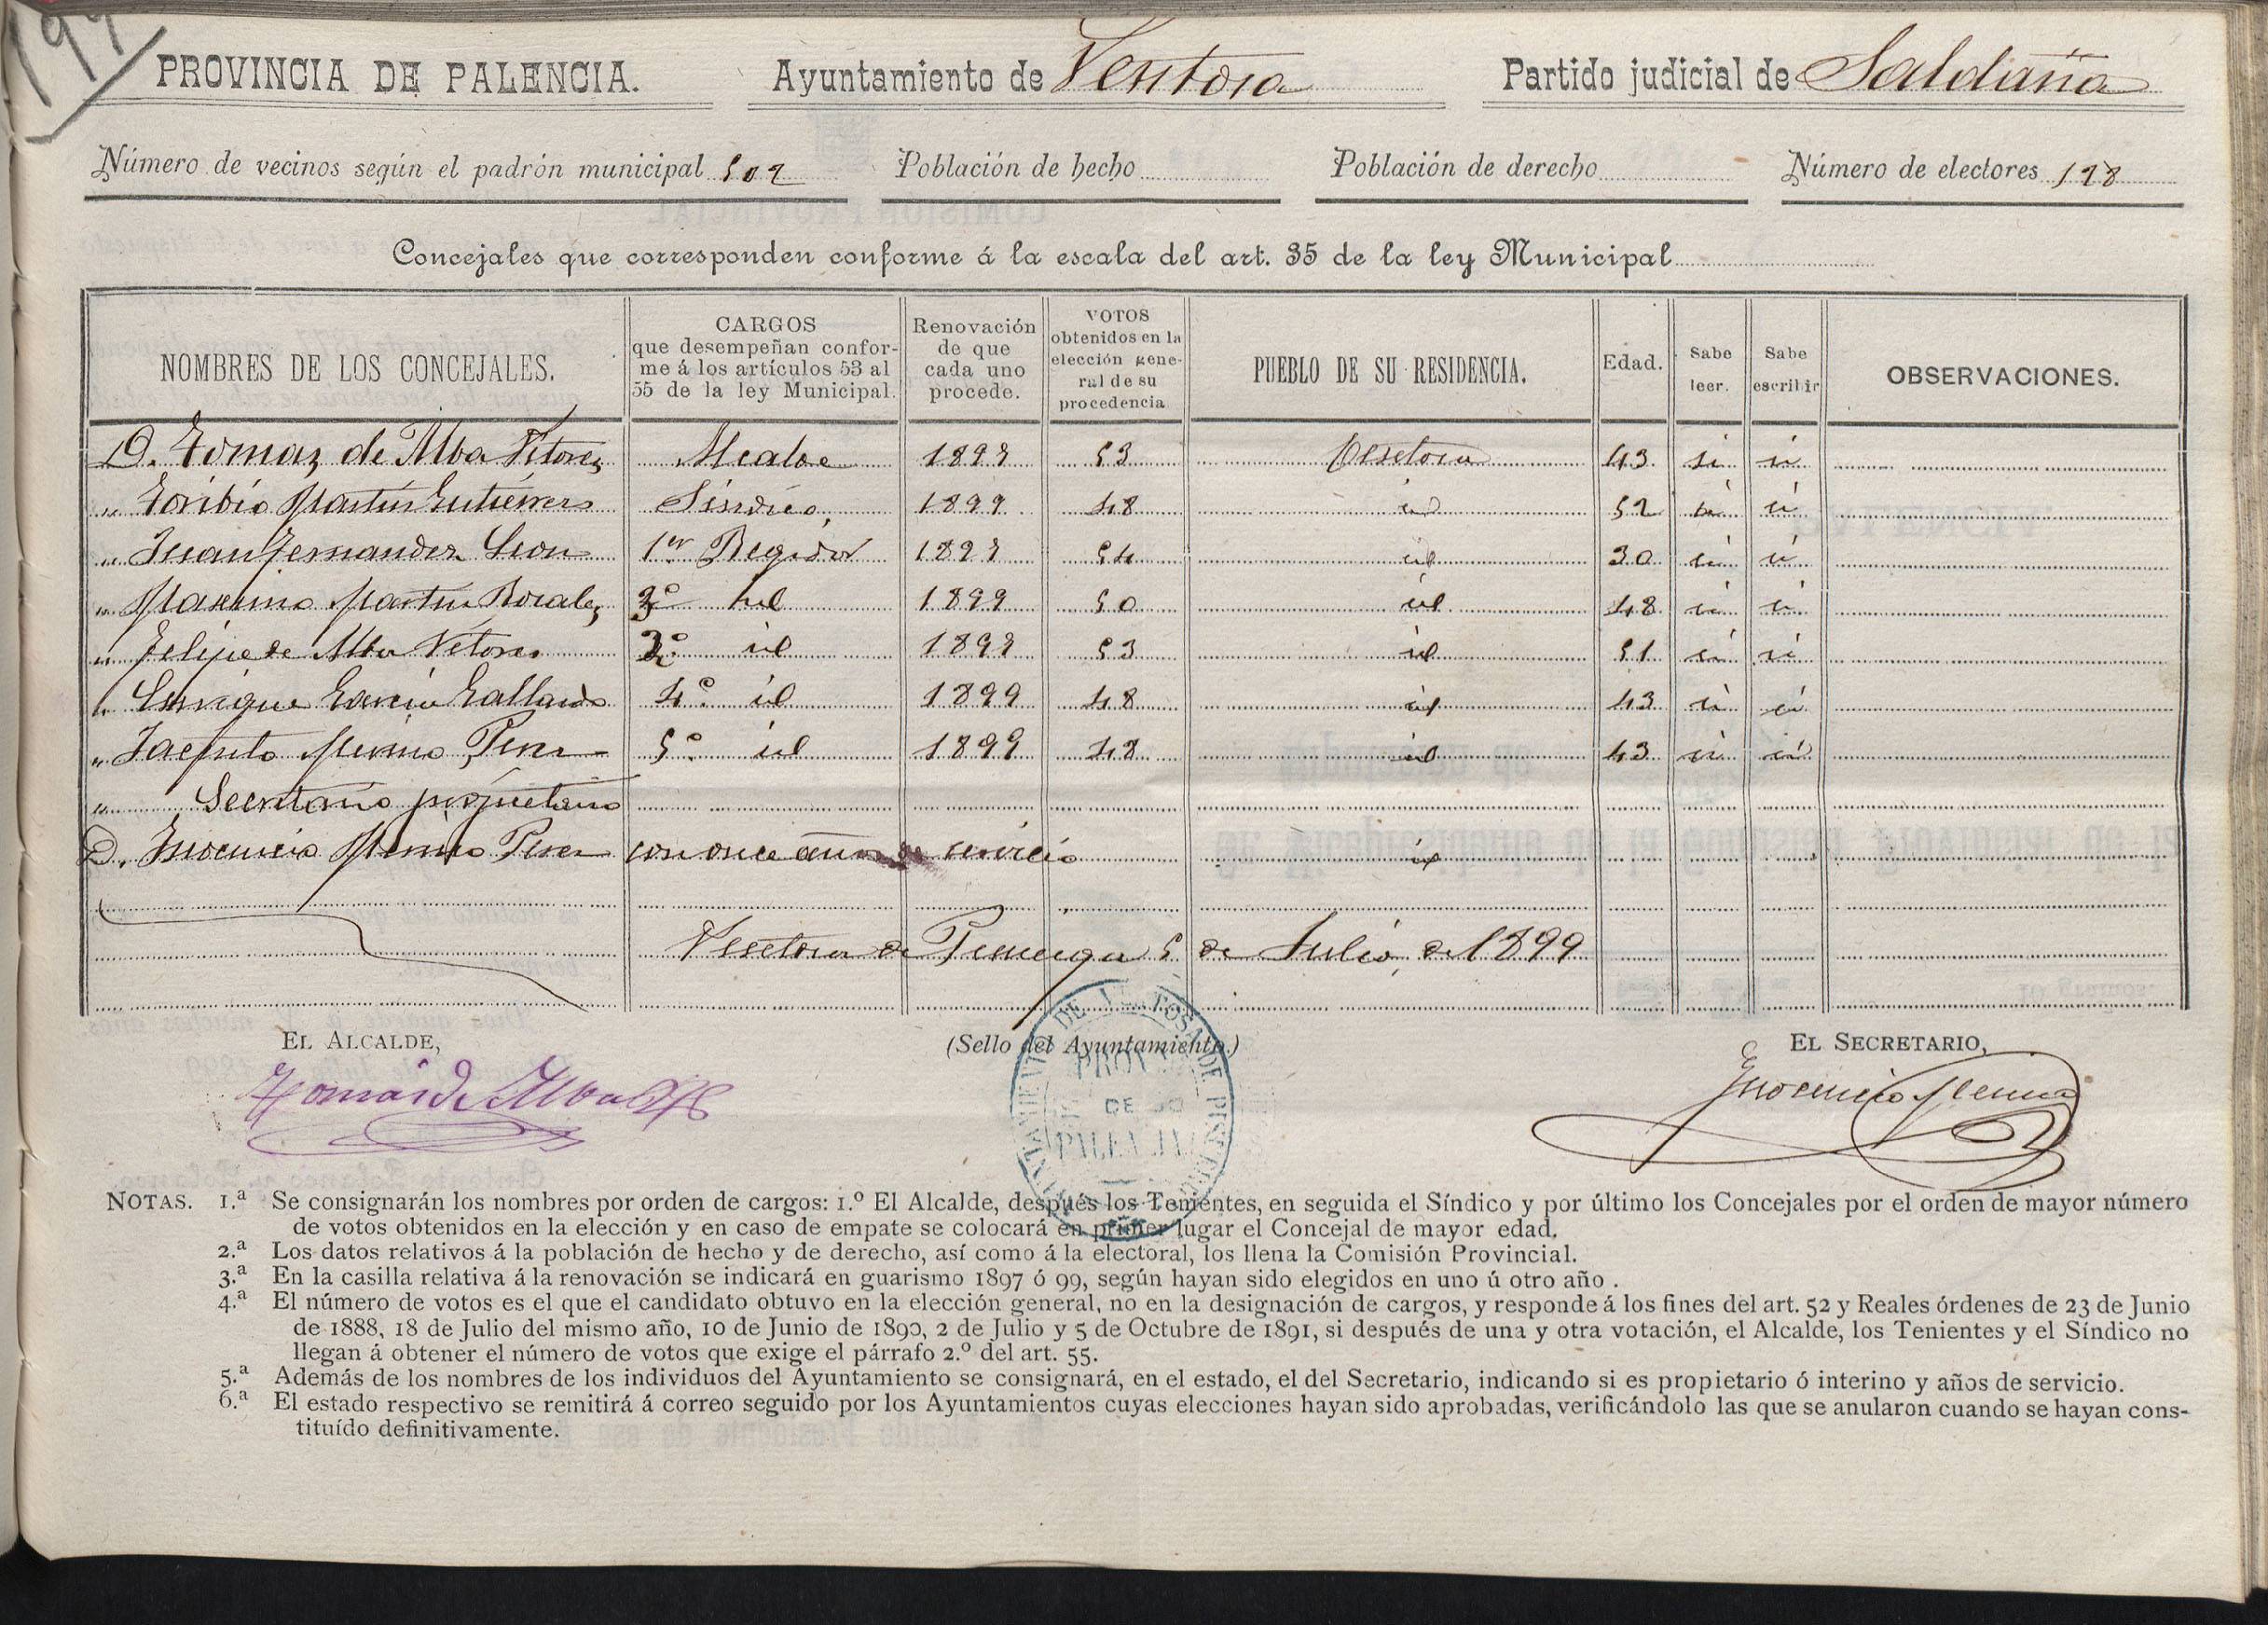 PROVINCIA DE PALENCIA. Ayuntamiento de Ventosa Partido judicial de Saldaña
Número de vecinos según el padrón municipal 502 Población de hecho Población de derecho Número de electores 198
Concejales que corresponden conforme á la escala del art. 35 de la ley Municipal
NOMBRES DE LOS CONCEJALES. CARGOS que desempeñan confor-me á los artículos 53 al 55 de la ley Municipal. Renovación de que cada uno procede. VOTOS obtenidos en la elección gene-ral de su procedencia PUEBLO DE SU RESIDENCIA. Edad. Sabe leer. Sabe escribir OBSERVACIONES.
D. Tomas de Alba Vitores Alcalde 1899 53 Ventosa 43 si si
" Toribio Martín Gutierrez Síndico, 1899 48 id 52 si si
" Juan Fernandez Leon 1er Regidor 1899 54 id 30 si si
" Maximo Martín Rosales 2º id 1899 50 id 48 si si
" Felipe de Alba Vitores 3º id 1899 53 id 51 si si
" Enrique García Gallardo 4º id 1899 48 id 43 si si
" Jacinto Merino Perez 5º id 1899 48 id 43 si si
" Secretario propietario
D. Inocencio Merino Perez con once años de servicio id
Ventosa de Pisuerga 5 de Julio de 1899
EL ALCALDE, (Sello del Ayuntamiento.) EL SECRETARIO,
Tomás de Alba
Inocencio Merino
PROVª DE PALENCIA
NOTAS. 1.ª Se consignarán los nombres por orden de cargos: 1.º El Alcalde, después los Tenientes, en seguida el Síndico y por último los Concejales por el orden de mayor número
de votos obtenidos en la elección y en caso de empate se colocará en primer lugar el Concejal de mayor edad.
2.ª Los datos relativos á la población de hecho y de derecho, así como á la electoral, los llena la Comisión Provincial.
3.ª En la casilla relativa á la renovación se indicará en guarismo 1897 ó 99, según hayan sido elegidos en uno ú otro año .
4.ª El número de votos es el que el candidato obtuvo en la elección general, no en la designación de cargos, y responde á los fines del art. 52 y Reales órdenes de 23 de Junio
de 1888, 18 de Julio del mismo año, 10 de Junio de 1890, 2 de Julio y 5 de Octubre de 1891, si después de una y otra votación, el Alcalde, los Tenientes y el Síndico no
llegan á obtener el número de votos que exige el párrafo 2.º del art. 55.
5.ª Además de los nombres de los individuos del Ayuntamiento se consignará, en el estado, el del Secretario, indicando si es propietario ó interino y años de servicio.
6.ª El estado respectivo se remitirá á correo seguido por los Ayuntamientos cuyas elecciones hayan sido aprobadas, verificándolo las que se anularon cuando se hayan cons-
tituído definitivamente.